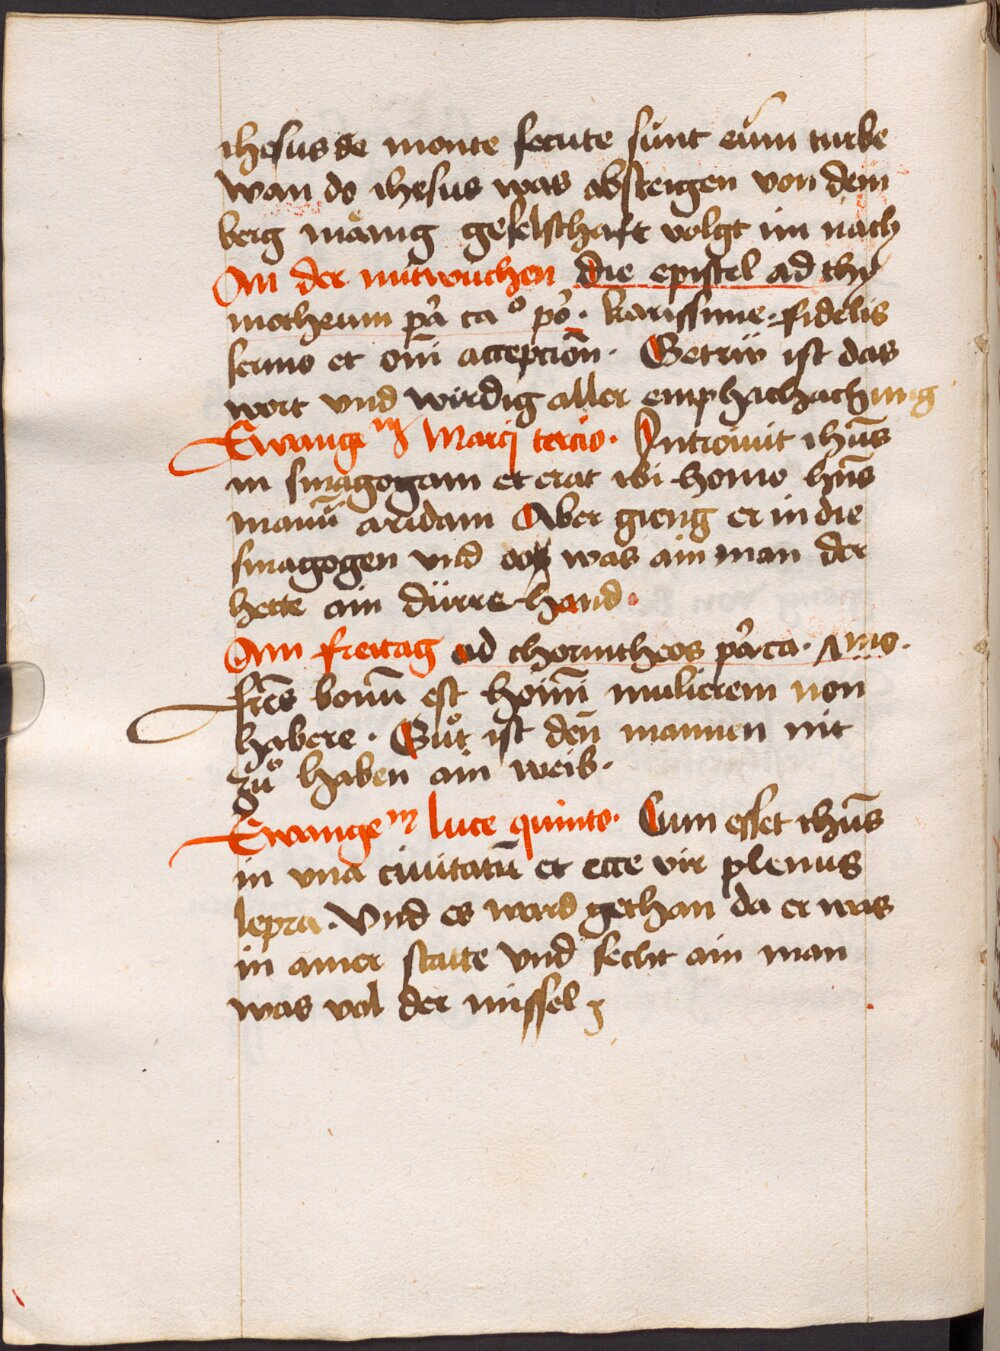 ihesus de monte secute sunt eum turbe
wan do ihesus was absteigen von dem
berg mänig geselschaft volgt im nach
An der mitwuchen die epistel ad thy
motheum p̄a cao po. karissime. fidelis
sermo et om̄i accepcion̄. Getriv ist das
wort vnd wirdig aller emphachachung
Ewangem Marcj tercio. Introiuit ihūs
in sinagogam et erat ibi homo hn̄s
manū aridam Aber gieng er in die
sinagogen vnd do was ain man der
hette ain dürre hand.
Am freitag ad chorintheos p̄a ca. vijo.
frēs bonū est hoīm mulierem non
habere. Gůt ist den̄ mannen nit
zů haben ain weib.
Ewangem luce quinto. Cum esset ihūs
in vna ciuitatū et ecce vir plenus
lepra. Vnd es ward gethan da er was
in ainer statte vnd secht ain man
was vol der missel